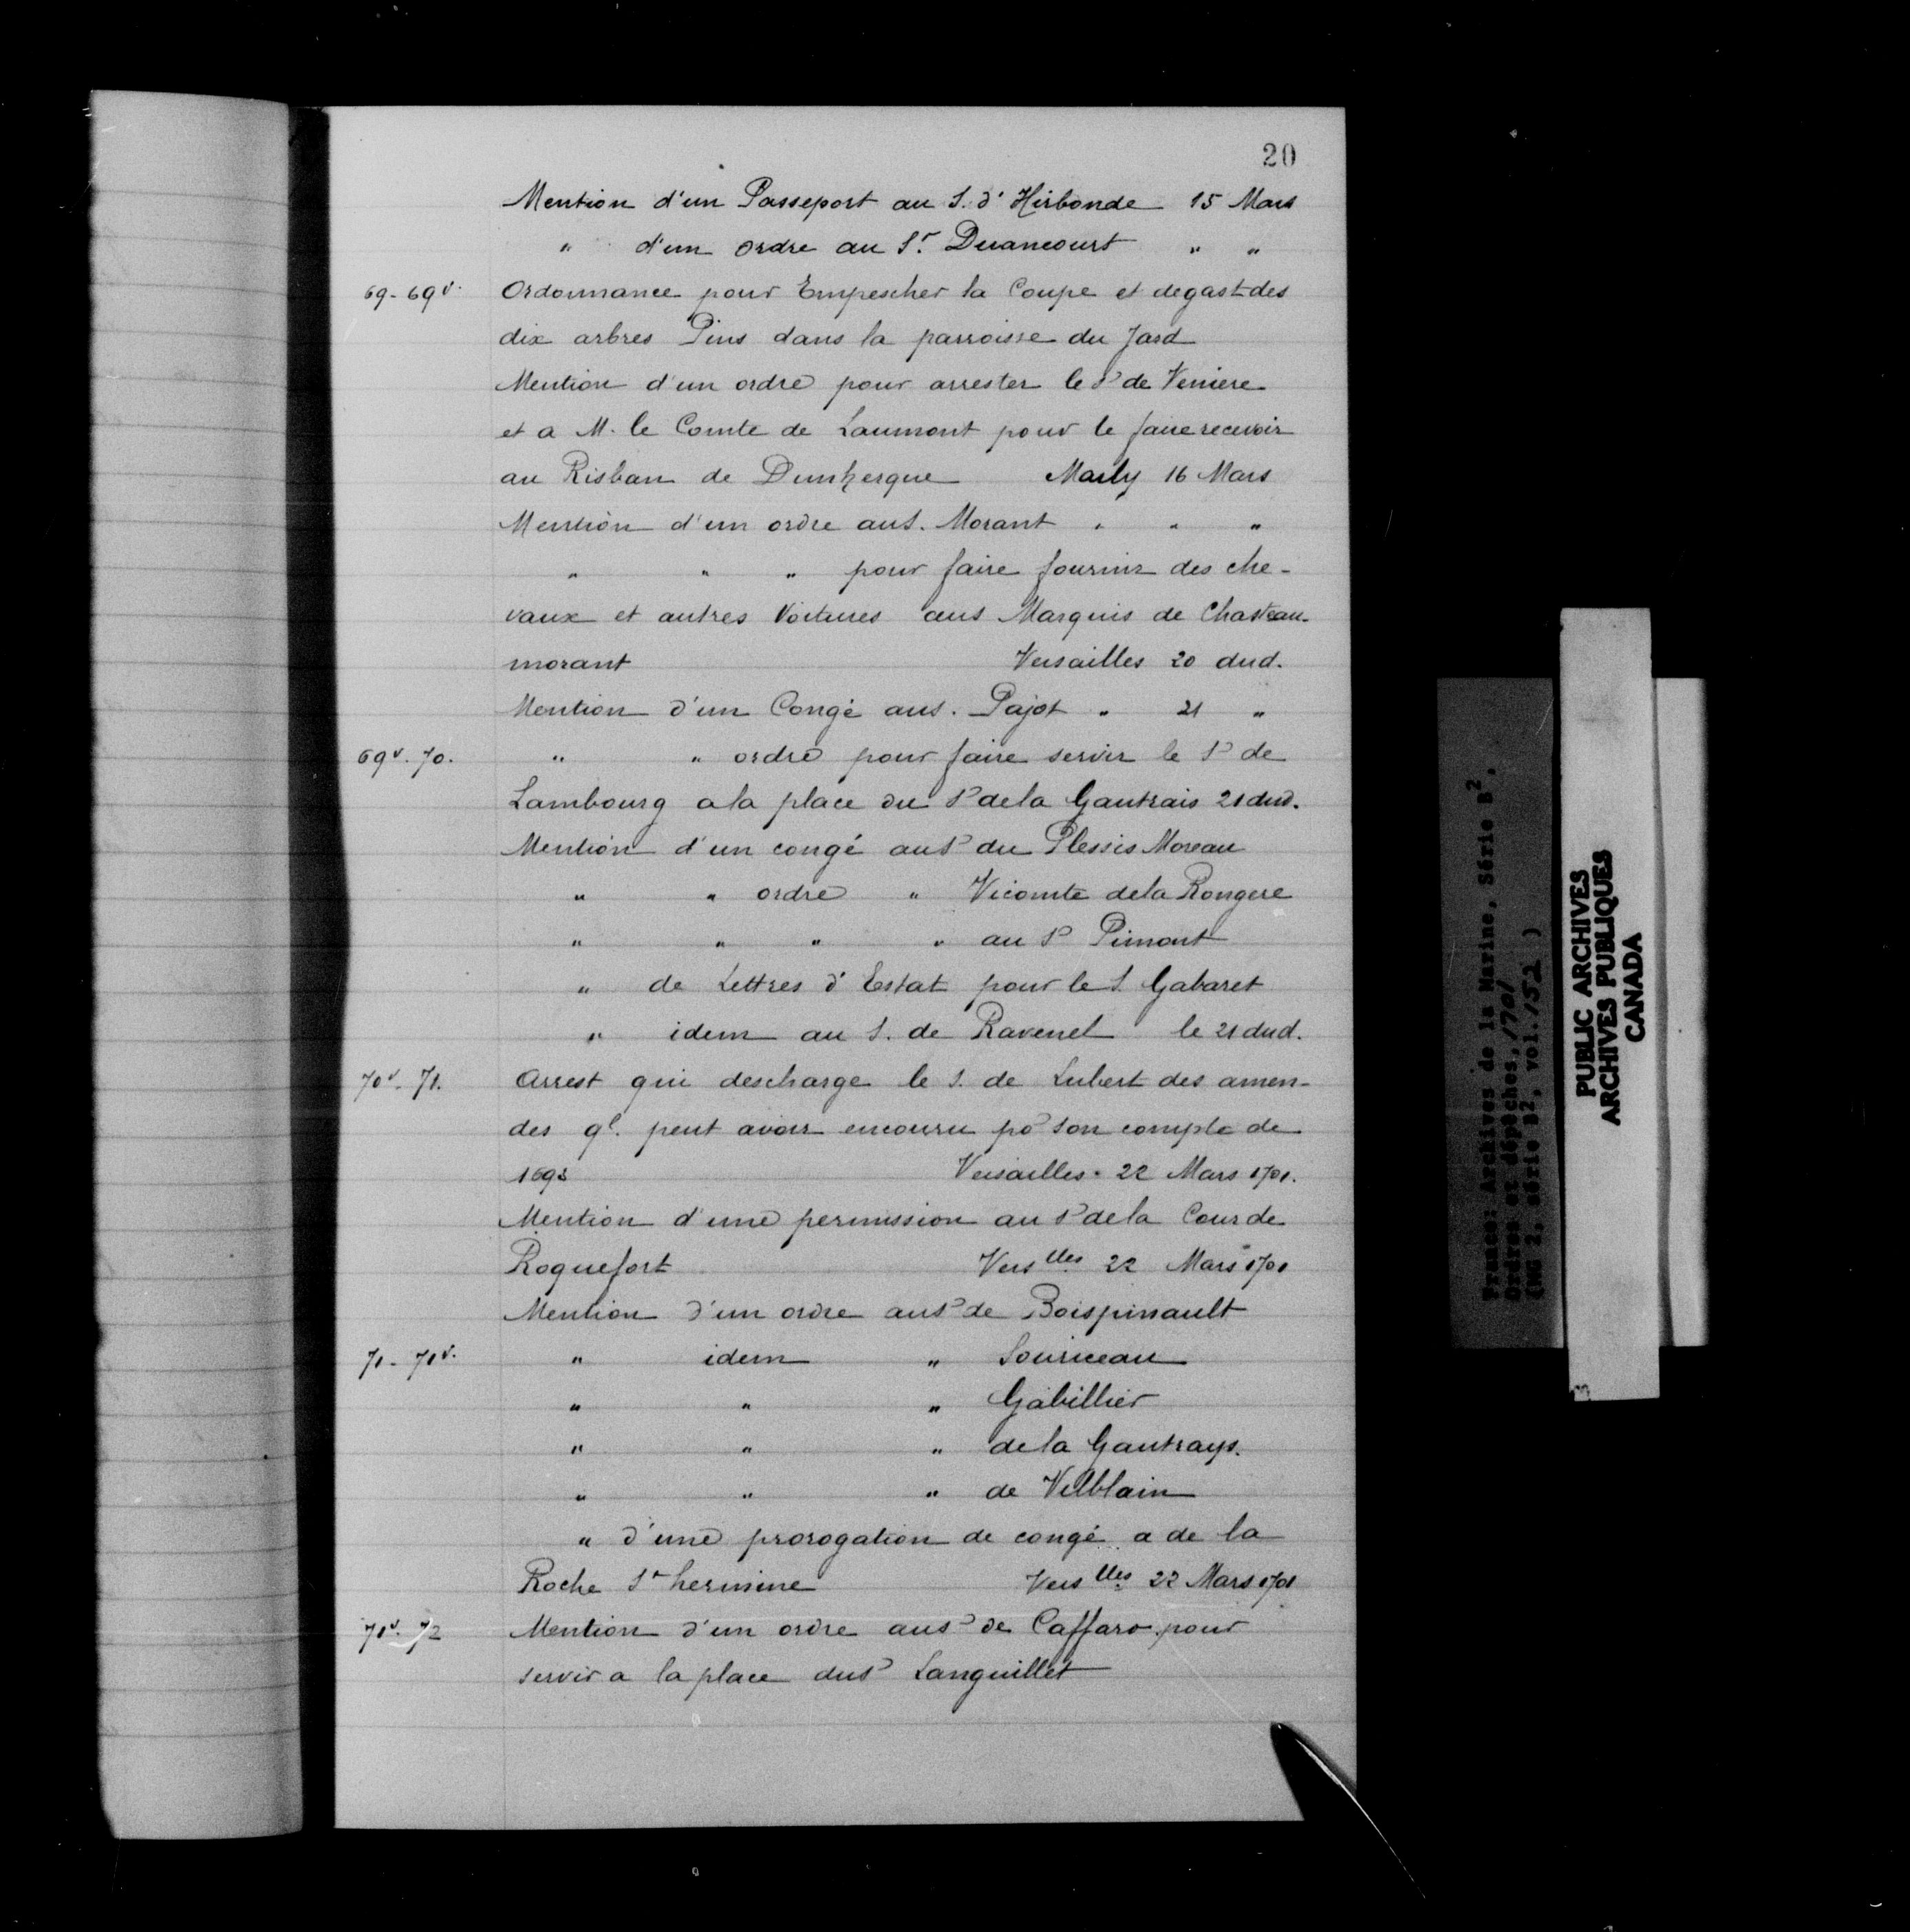 20
Mention d'un Passeport au S. d'Hirbonde 15 Mars
" d'un ordre au Sr. Duancourt " "
69-69v. Ordonnance pour Empescher la Coupe et degast des
dix arbres Pins dans la parroisse du Jard
Mention d'un ordre pour arrester le Sr de Veniere
et a M. le Comte de Laumont pour le faire recevoir
au Risban de Dunkerque Marly 16 Mars
Mention d'un ordre au S. Morant " " "
" " " pour faire fournir des che-
vaux et autres Voitures au S Marquis de Chasteau-
morant Versailles 20 dud.
Mention d'un Congé au S. Pajot " 21 "
69v. 70. " " ordre pour faire servir le Sr de
Lambourg a la place du Sr de la Gautrais 21 dud.
Mention d'un congé au Sr du Plessis Moreau
" " ordre " Vicomte de la Rongere
" " " " au Sr Pimont
" de Lettres d'Estat pour le S. Gabaret
" idem au S. de Ravenel le 21 dud.
70v. 71. Arrest qui descharge le S. de Lubert des amen-
des ql. peut avoir encouru po son compte de
Versailles. 22 Mars 1701.
Mention d'une permission au Sr de la Cour de
Roquefort Verslles 22 Mars 1701
Mention d'un ordre au Sr de Boispinault
71-71v. " idem " Souriceau
" " " Gabillier
" " " de la Gautrays.
" " " de Vilblain
" d'une prorogation de congé a de la
Roche St hermine Verslles 22 Mars 1701
71v. 72 Mention d'un ordre au Sr de Caffaro pour
servir a la place du Sr Languillet
France: Archives de la Marine, Série B2.
Ordres et dépêches, 1701
(MG 2, série B2, vol. 152)
PUBLIC ARCHIVES
ARCHIVES PUBLIQUES
CANADA